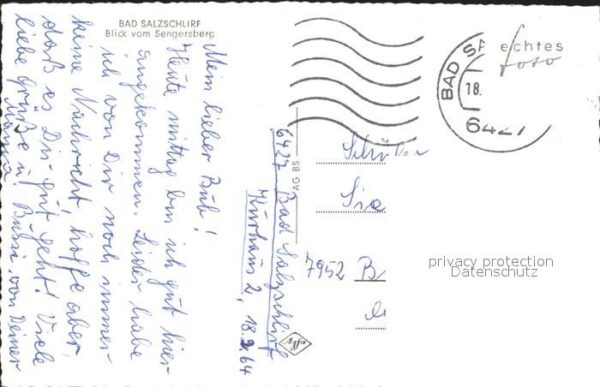 BAD SALZSCHLIRF
Blick vom Sengersberg
Mein lieber Bub!
Heute mittag bin ich gut hier
angekommen. Leider habe
ich von Dir noch immer
keine Nachricht, hoffe aber,
daß es Dir gut geht! Viele
liebe Grüße u. Bussi von Deiner
Mama
6427 Bad Salzschlirf
Kurhaus 2, 18.9.64
AG BS
echtes
foto
BAD SA
18.
6427
Schü
Sie
7952 B
privacy protection
Datenschutz